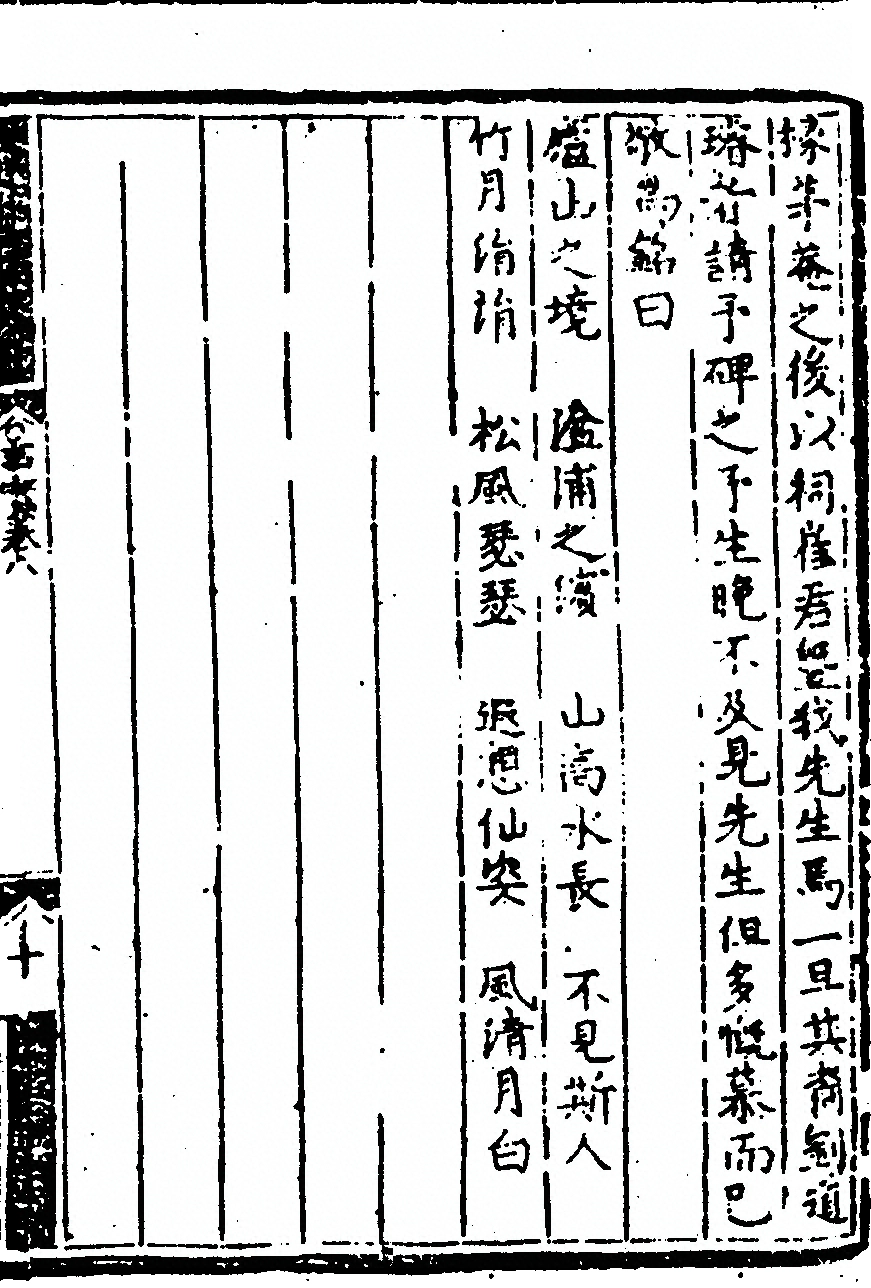 採芋菴之後以祠崔君曁我先生焉一旦其裔劍道
璿等請予碑之予生晚不及見先生但多慨慕而已
敬爲銘曰
盤山之境　澹浦之濱　山高水長　不見斯人
竹月涓涓　松風瑟瑟　遐想仙姿　風清月白
卷八
十